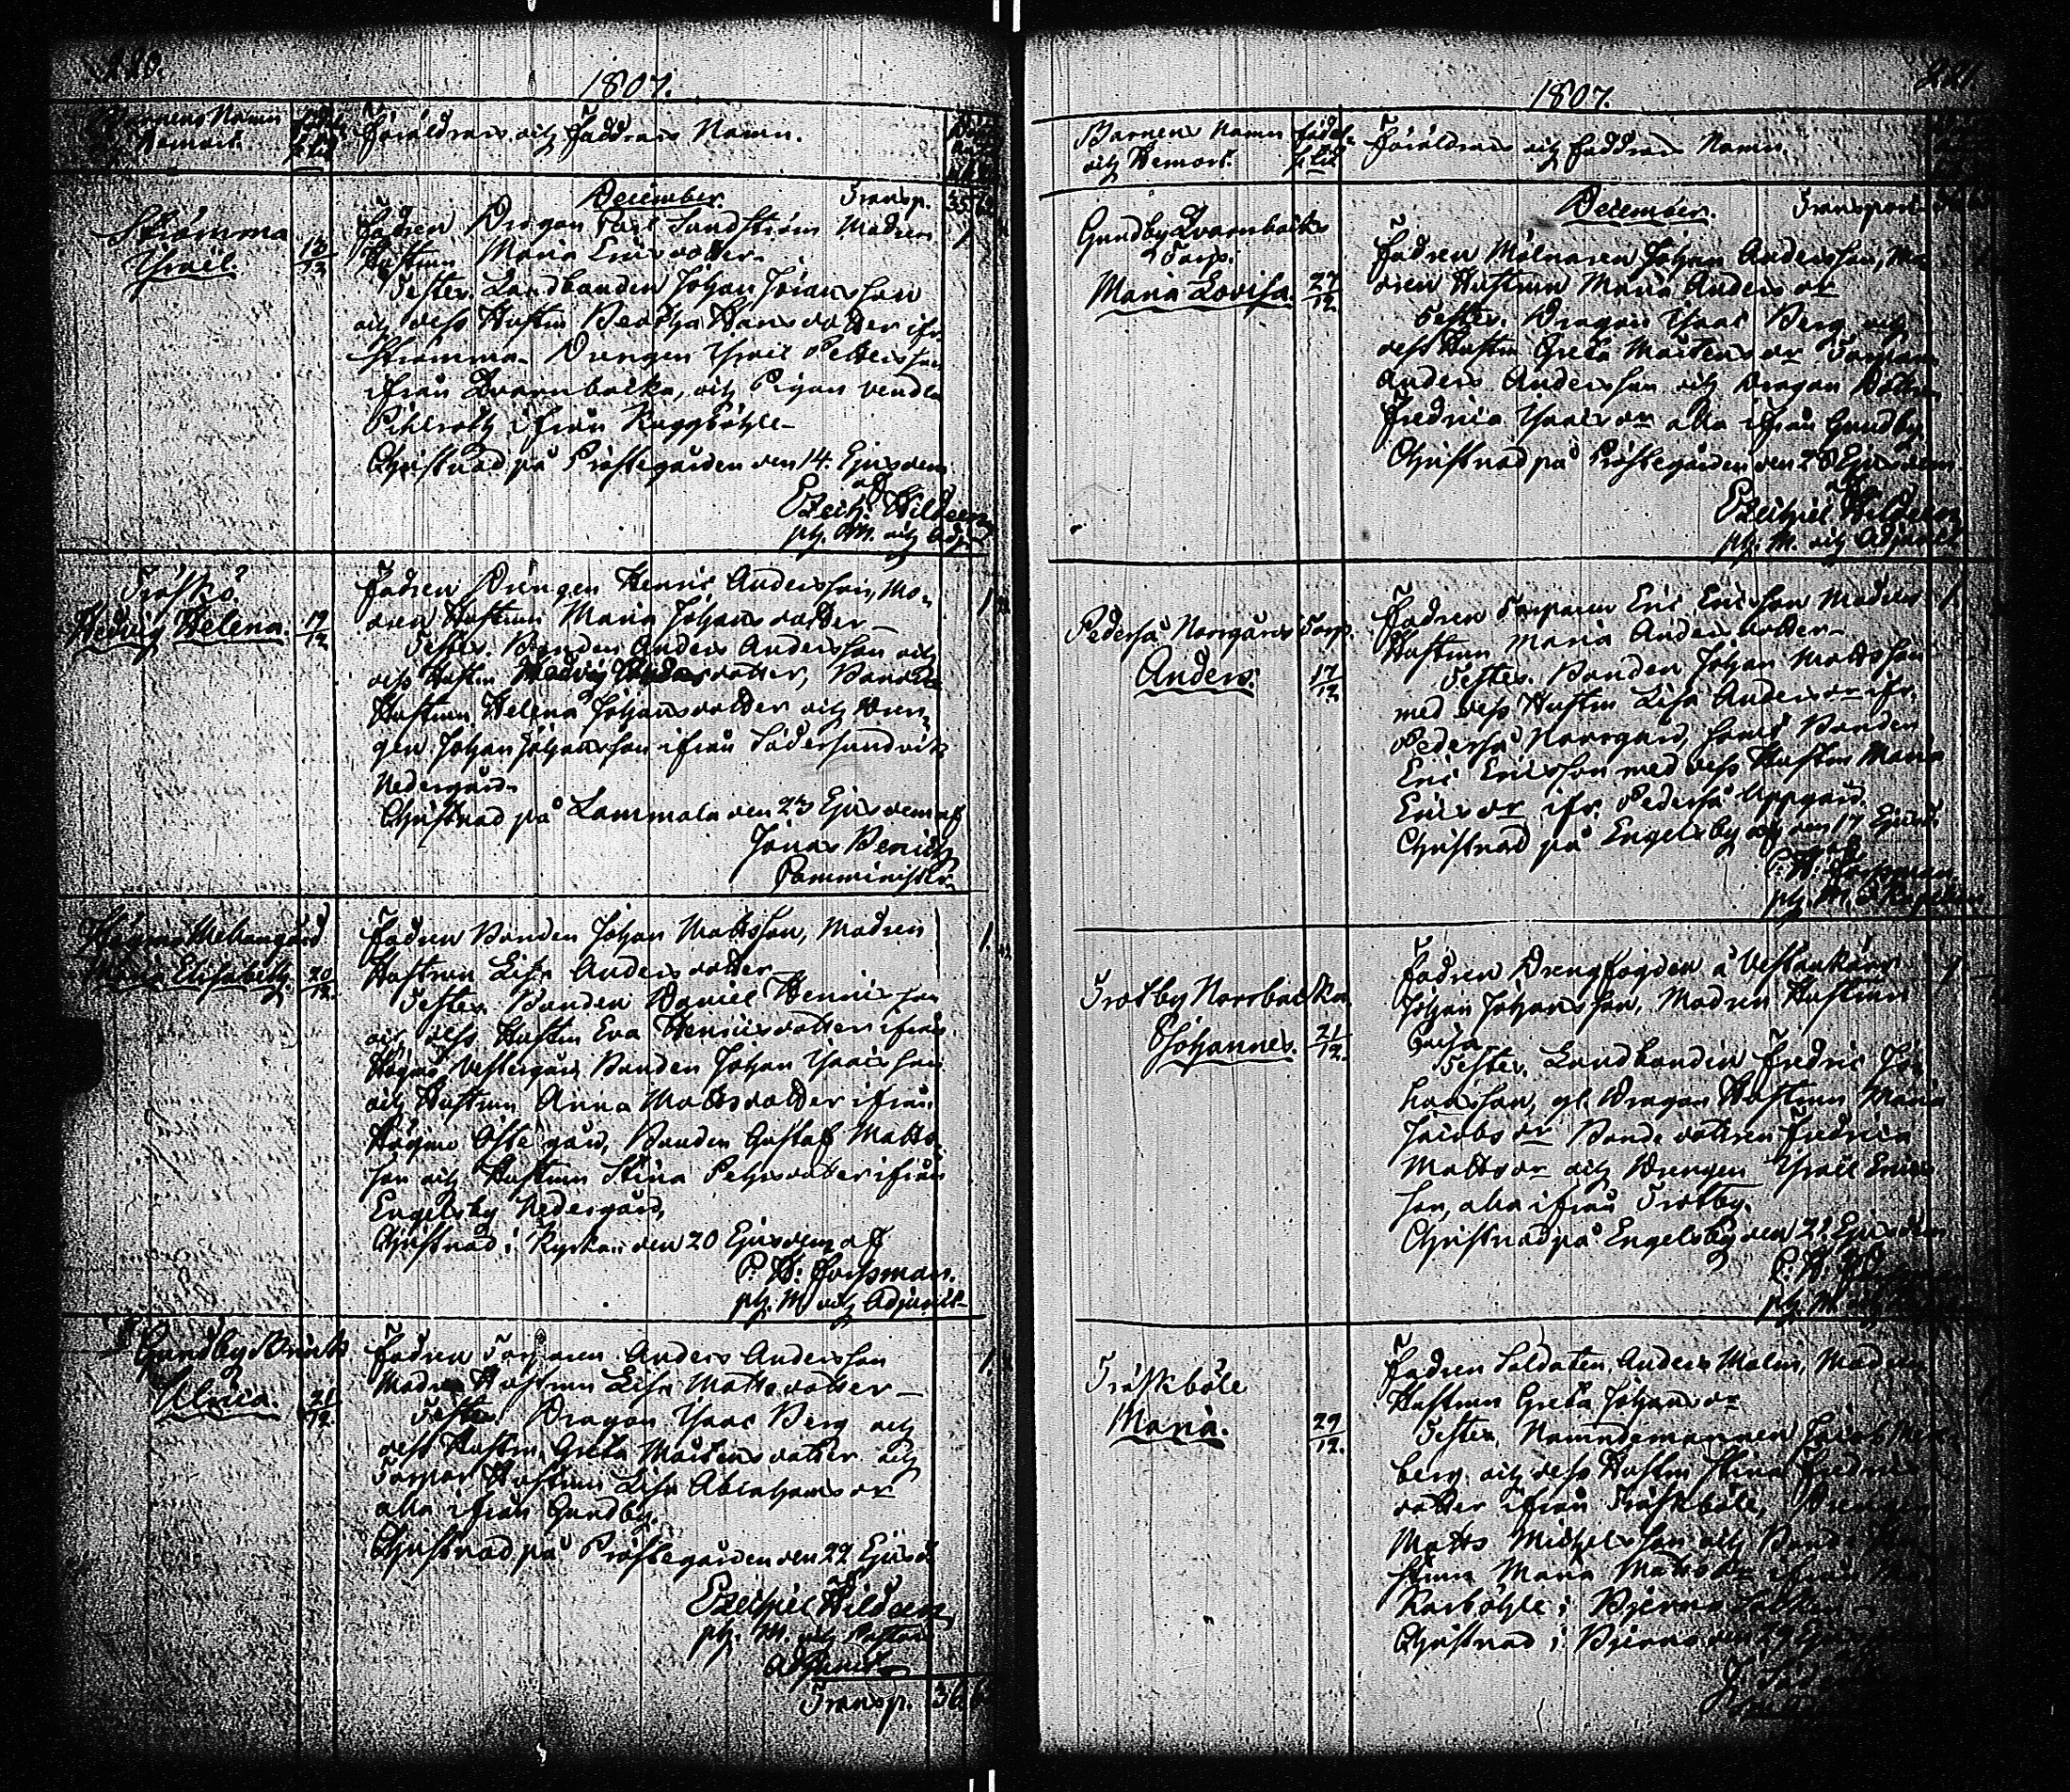 220.
1807.
Barnens Namn
Hemort.
Föräldrars och Faddrars Namn.
December. Transp.
Strömma
Israel. 13/12
Fadren Dragon Carl Sundström Modren 1
Hustrun Maria Ericsdotter
Testes. Landbonden Johan Johansson
och dess Hustru Beatha Hansdotter ifr.
Strömma. Drengen Israel Pettersson
ifrån Qvarnbacka, och Pigan Vendla
ifrån Knaggböhle
Christnad på Prästegården den 14. Ejusdem
af
Ezech: Hildeen
pth. M. och Adj.
Träskö
Hedvig Helena. 19/12
Fadren Drengen Henric Andersson, Mo- 1
dren Hustrun Maria Johansdotter
Testes. Bonden Anders Andersson och
dess Hustru Hedvig dotter, Bonde
Hustrun Helena Johansdotter och Dren-
gen Johan Johansson ifrån Södersundvik
Nedergård.
Christnad på Lammala den 23 Ejusdem af
Jonas Benich
Comminister.
Högmo Mellangård
Maria Elisabeth. 20/12.
Fadren Bonden Johan Mattsson, Modren 1.
Hustrun Lisa Andersdotter
Testes. Bonden Daniel Henricsson
och dess Hustru Eva Henricsdotter ifrån
Högmo Vestergård, Bonden Johan Isaacsson
och Hustrun Anna Mattsdotter ifrån
Högmo Östergård, Bonden Gustaf Matts-
son och Hustrun Stina Pehrsdotter ifrån
Engelsby Nedergård,
Christnad i Kyrkan den 20 Ejusdem af
P. H: Forssman.
pth. M. och Adjunct
Gundby Brink
Ulrica. 21/12.
Fadren Torparen Anders Andersson 1.
Modren Hustrun Lisa Mattsdotter
Testes. Dragon Isaac Berg och
dess Hustru Greta Mårtensdotter och
Torpar Hustrun Lisa Abrahamsdr
alla ifrån Gundby.
Christnad på Prästegården den 22 Ejusd.
af
Ezechiel Hildeen
pth. M. och Pastors
Adjunct
Transp.
221.
1807.
Barnens Namn
och Hemort.
födelse
tid
Föräldrars och Faddrars Namn.
December. Transport
Gundby Qvarnbacka
Torp.
Maria Lovisa. 27/12
Fadren Mölnaren Johan Andersson, Mo-
dren Hustrun Maria Andersdr
Testes. Dragon Isaac Berg och
dess Hustru Greta Mårtensdr Torparen
Anders Andersson och Dragon Dottren
Fredrica Isaacsdr alla ifrån Gundby
Christnad på Prästegården den 28 Ejusdem
af
Ezechiel Hildeen
pth. M. och Adjunct
Pederså Norrgårds Torp.
Anders. 17/12
Fadren Torparen Eric Ericsson Modren 1.
Hustrun Maria Andersdotter
Testes. Bonden Johan Mattsson
med dess Hustru Lisa Andersdr ifr.
Pederså Norrgård, samt Bonden
Eric Ericsson med dess Hustru Maria
Ericsdr ifr. Pederså Uppgård.
Christnad på Engelsby den 17 Ejusd.
af
P. H. Forssman
pth. M.
Trotby Norrbacka
Johannes. 21/12.
Fadren Drengfogden å Vestankärr 1
Johan Johansson, Modren Hustrun
Caisa
Testes. Landbonden Fredric Jo-
hansson, gl. Dragon Hustrun Maria
Jacobsdr Bonde dottren Fredrica
Mattsdr och Drengen Israel Erics-
son, alla ifrån Trotby.
Christnad på Engelsby den 22 Ejusdem
af
P. H.
pth. M. och
Träskböle
Maria. 29/12.
Fadren Soldaten Anders Malm, Modren
Hustrun Greta Johansdr
Testes, Nämndemannen Jacob
berg och dess Hustru Stina Fredrics
dotter ifrån Träskböle, Drengen
Matts Michelsson och Bonde Hu-
strun Maria Mattsdr ifrån
Karböhle i Bjerno
Christnad i Bjerno den 29